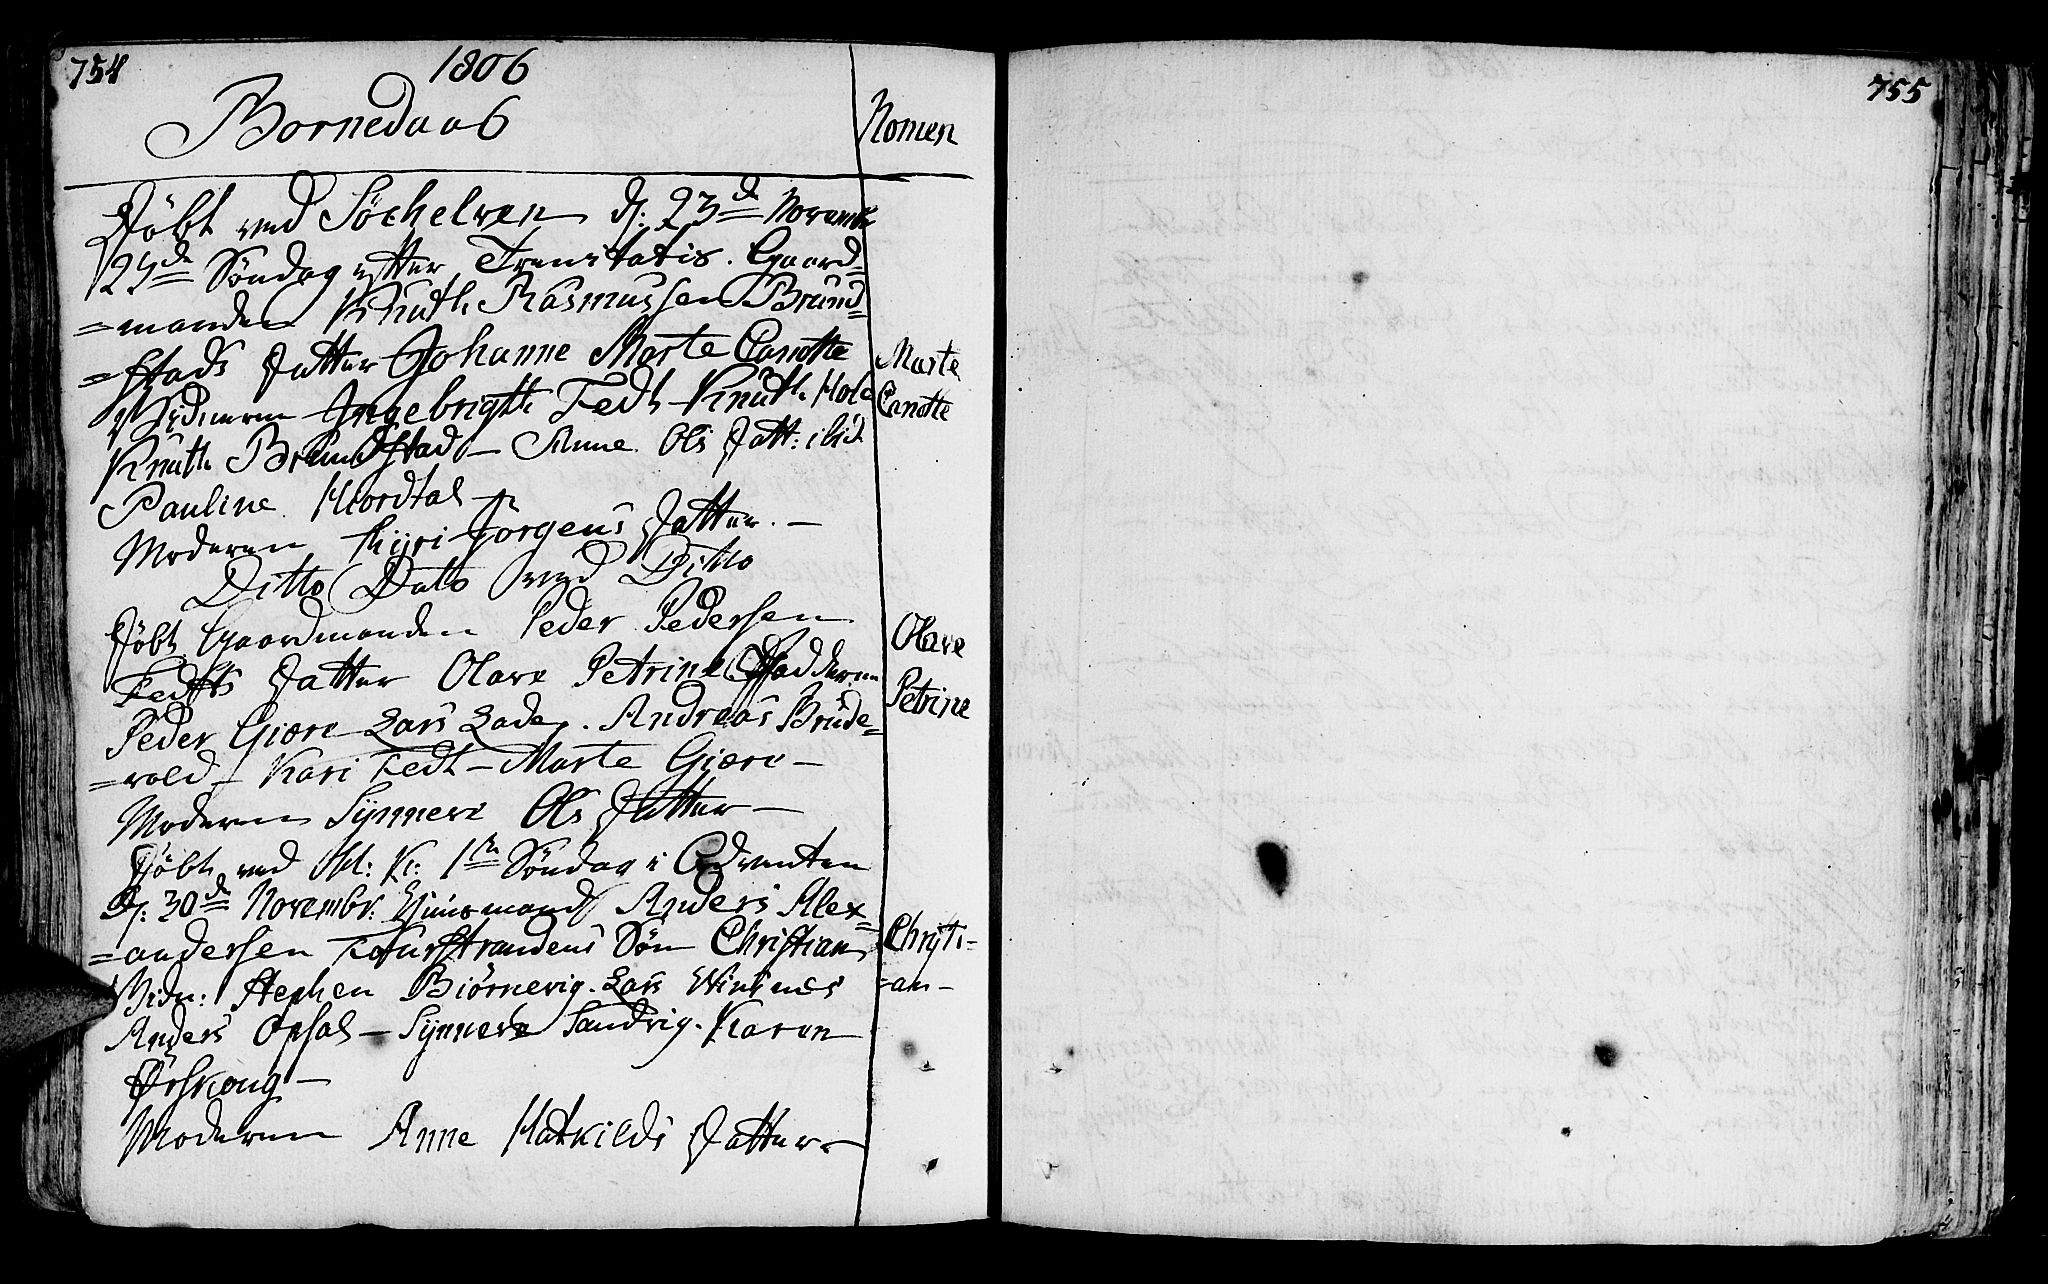 754
1806
Bornedaab
Nomen
Döbt ved Söchelven d: 23de Novembr
25de Söndag efter Trenitatis. Gaard=
=manden Knuth Rasmussen Brund=
=stads Datter Johanne Marte Canotte
Vidnerne Ingebrigth Fedt Knuth Hole
Knuth Brundstad – Anne Ols Datt: ibid
Pauline Hiordtal –
Moderen Gyri Jörgens Datter. –
Ditto Dato ved Ditto
Döbt Gaardmanden Peder Pedersen
Fedts Datter Olave Petrine Fadderne
Peder Giære Lars Lade. Andreas Brude=
=vold – Kari Fedt – Marte Giære –
Moderen Synneve Ols Datter –
Döbt ved K: 1te Söndag i Adventen
D: 30de Novembr: Huusmand Anders Alex=
=andersen Sön Christian
Vidn: Stephen Biörnevig. Lars Wiksnes
Anders Opsal – Synneve Sandvig. Karen
Ørskoug –
Moderen Anne Hatkilds Datter –
Marte
Canotte
Olave
Petrine
Christi=
=an –
755